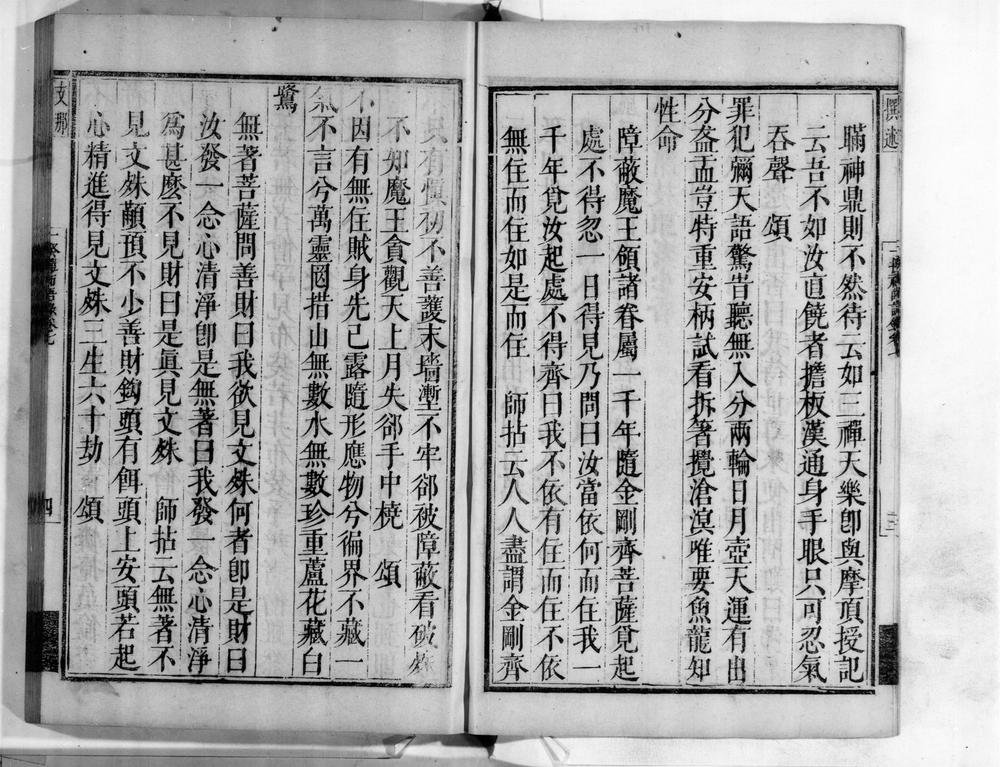 撰述
瞞神鼎則不然待云如三禪天樂卽與摩頂授記
云吾不如汝直饒者擔板漢通身手眼只可忍氣
吞聲　頌
罪犯彌天語驚旹聽無入分兩輪日月壺天運有出
分盋盂豈特重安柄試看拆箸攪滄溟唯要魚龍知
性命
障蔽魔王領諸眷屬一千年隨金剛齊菩薩覓起
處不得忽一日得見乃問曰汝當依何而住我一
千年覓汝起處不得齊曰我不依有住而住不依
無住而住如是而住　師拈云人人盡謂金剛齊
只有慎初不善護末墻塹不牢郤被障蔽看破
不知魔王貪觀天上月失郤手中橈　頌
不因有無住賊身先已露隨形應物兮徧界不藏一
氣不言兮萬靈罔措山無數水無數珍重蘆花藏白
鷺
無著菩薩問善財曰我欲見文殊何者卽是財曰
汝發一念心清淨卽是無著曰我發一念心清淨
爲甚麼不見財曰是眞見文殊　師拈云無著不
見文殊顢頇不少善財鈎頭有餌頭上安頭若起
心精進得見文殊三生六十劫　頌
支那
四